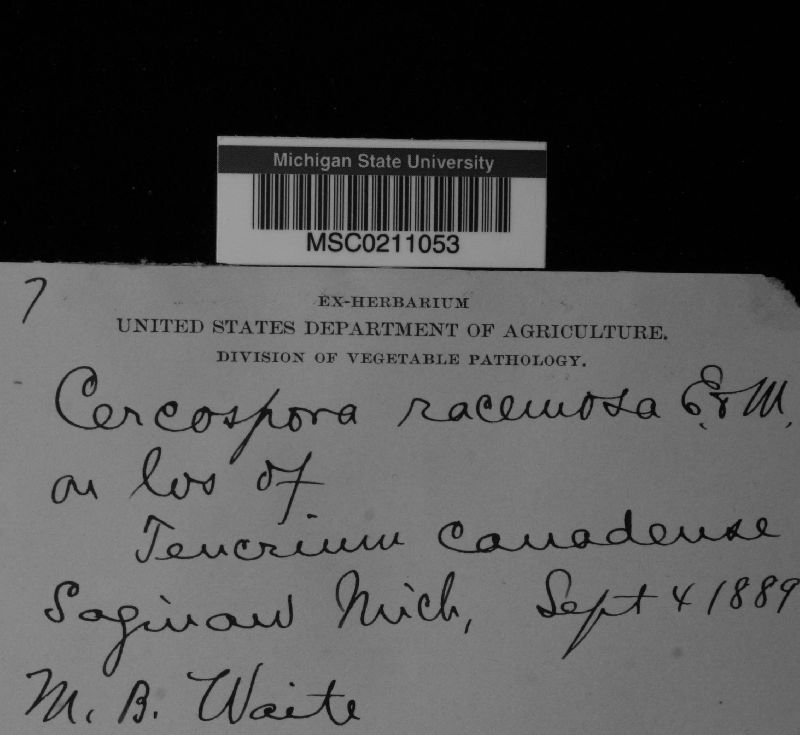 Michigan State University
MSC0211053
7
EX-HERBARIUM
UNITED STATES DEPARTMENT OF AGRICULTURE.
DIVISION OF VEGETABLE PATHOLOGY.
Cercospora racemosa E. & M.
on lvs of
Teucrium canadense
Saginaw Mich, Sept 4 1889
M. B. Waite